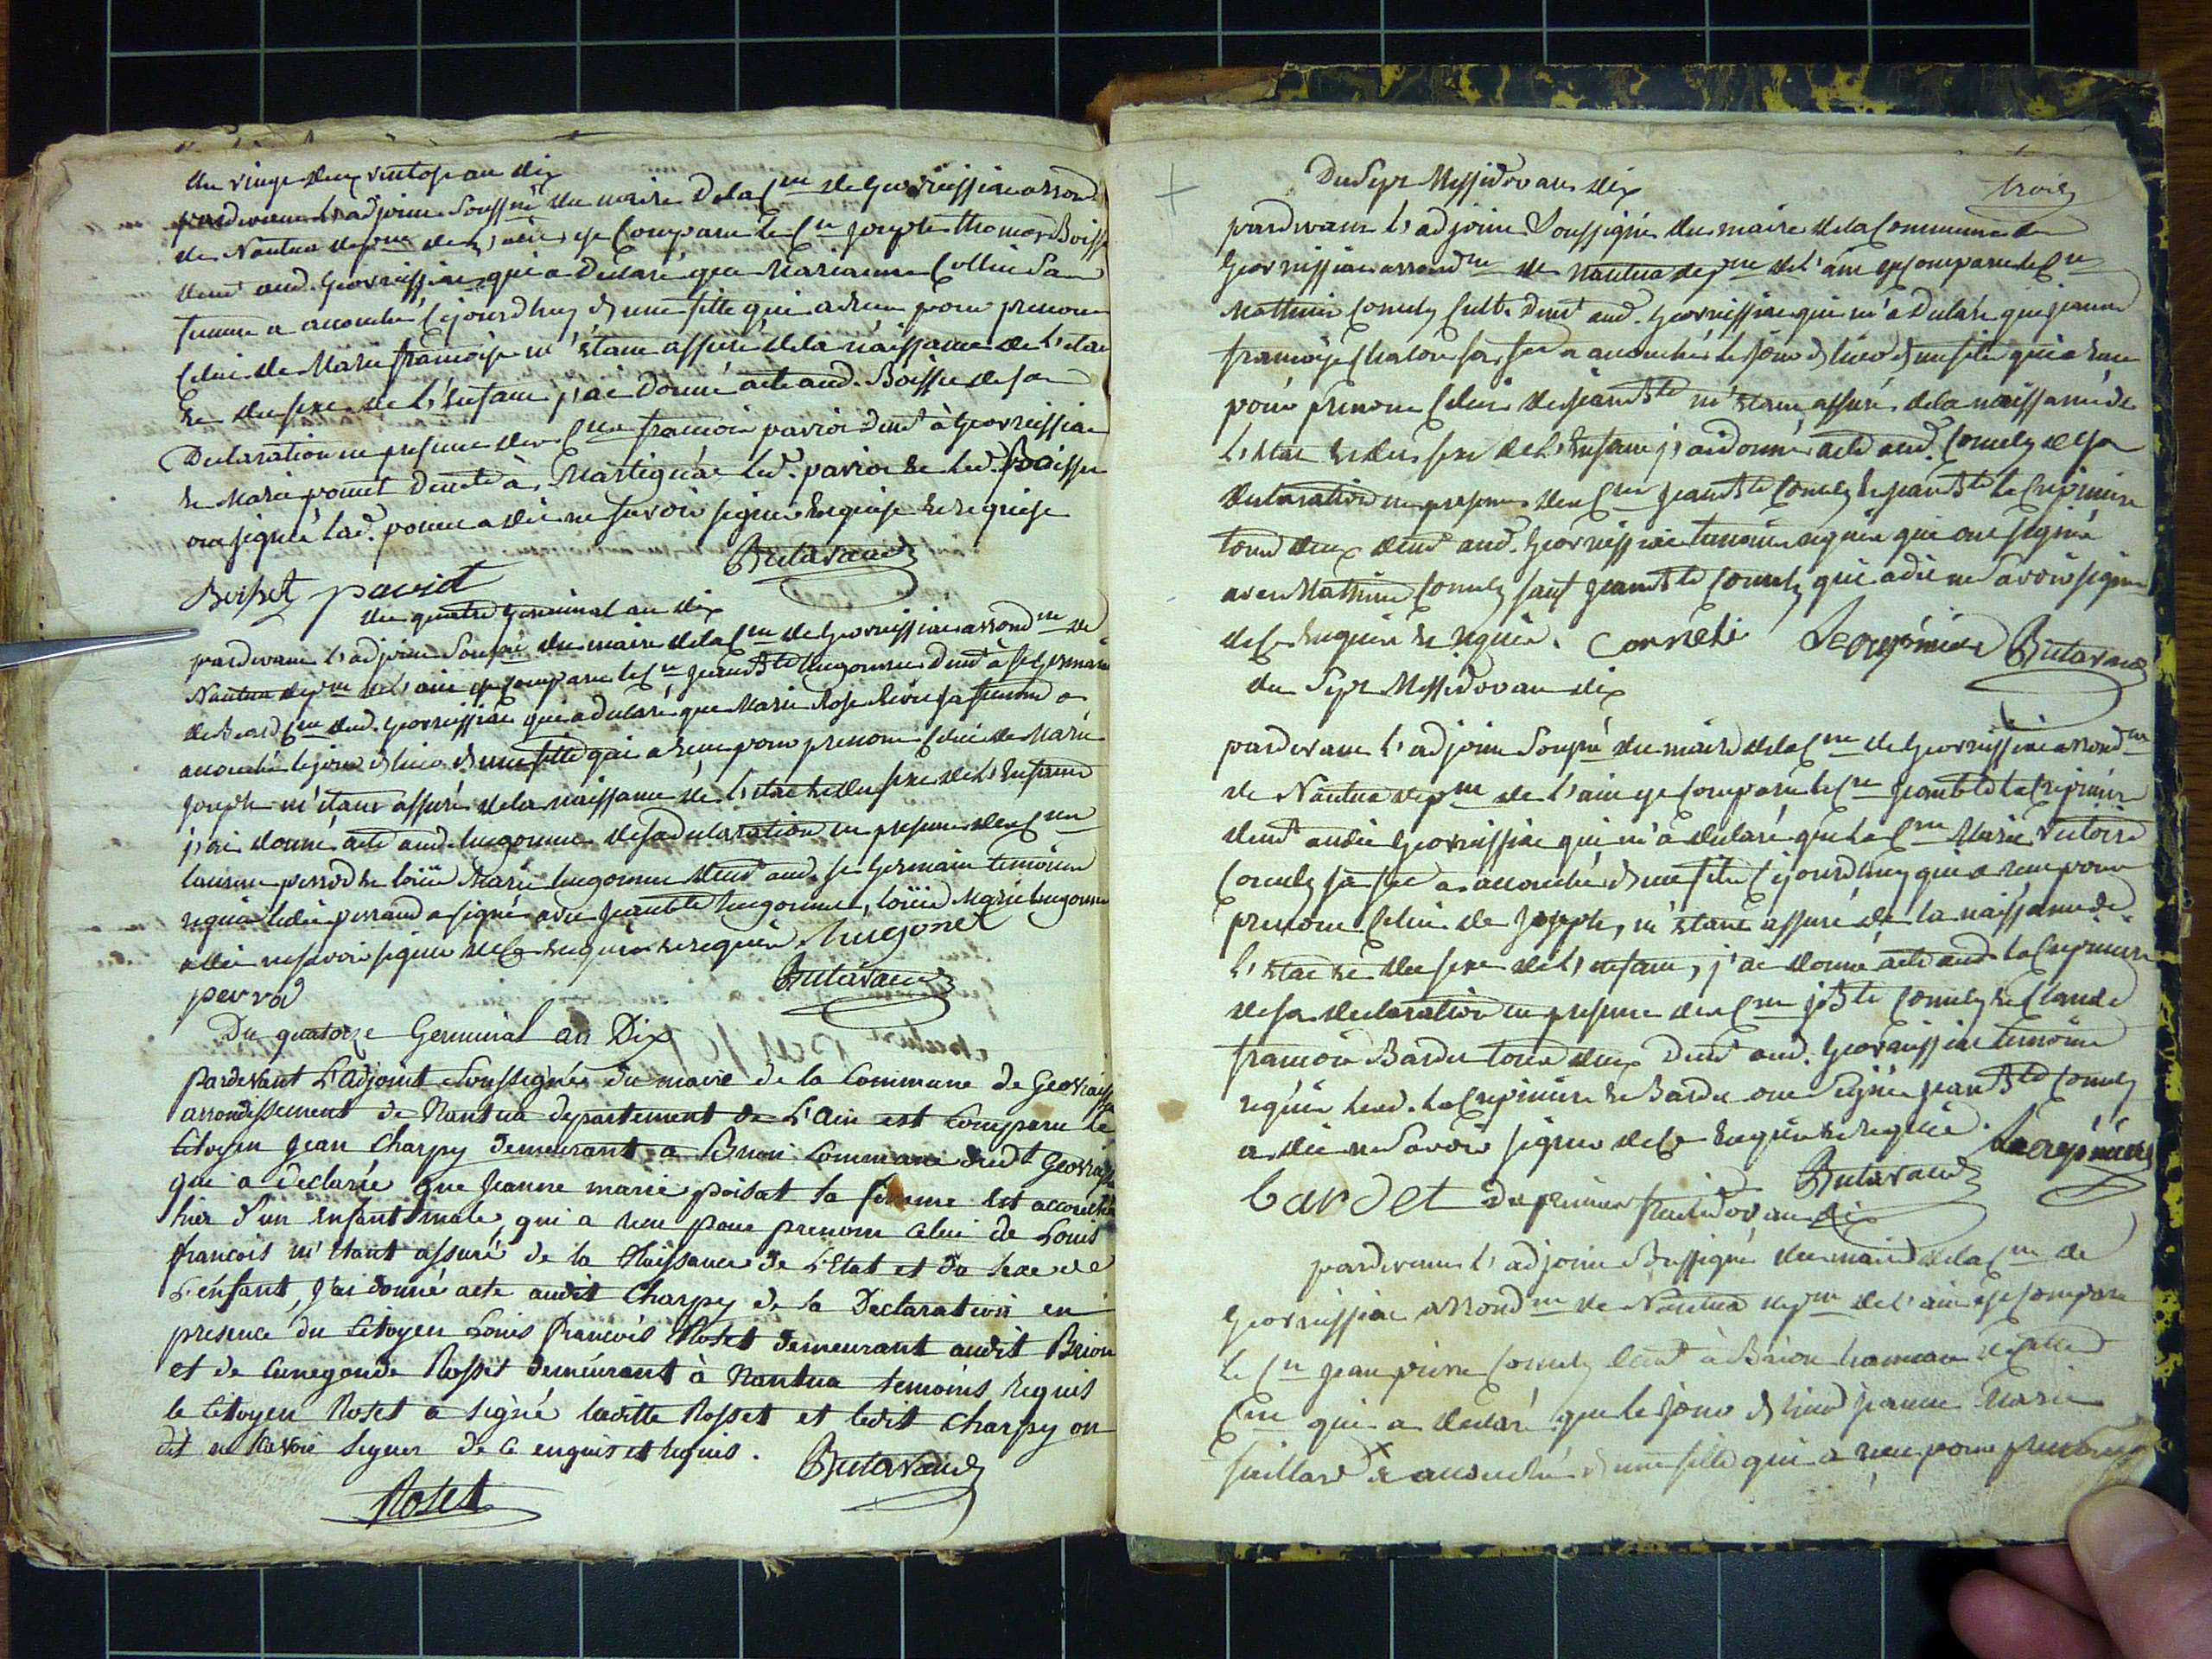 du vingt deux ventose an dix
pardevant l'adjoint soussné du maire de la Cne de Geovreissiat arrond
de Nantua depme de l'ain est comparu le Cn joseph thomas Boisse
demt aud. Geovreissiat qui a declaré que Marianne Collin sa
femme a accouché cejourdhuy d'une fille qui a reçu pour prenom
celui de Marie françoise m'étant assuré de la naissance de l'état
et du sexe de l'enfant j'ai donné acte aud. Boisse de sa
Declaration en presence des Cns francois demt à Geovreissiat
et Marie ponet à Martignat led. et led. Boisse
ont signé lad. ponet a dit ne savoir signer enquise et requise
Boisset paviot Butavand
du quatre germinal an dix
pardevant l'adjoint sousné du maire de la Cne de Geovreissiat arrondme de
Nantua depme de l'ain est comparu le Cn jean Bte hugonnet demt à St Germain
de Beard Cne dud. Geovreissiat qui a declaré que Marie Rose sa femme a
accouché le jour d'hier d'une fille qui a reçu pour prenom celui de Marie
joseph m'étant assuré de la naissance de l'état et du sexe de l'enfant
j'ai donné acte aud. hugonnet de sa declaration en presence des Cns
perrod et loüis Marie hugonnet demt aud. St Germain temoins
requis ledit perraud a signé avec jean bte hugonnet, loüis Marie hugonnet
a dit ne savoir signer de ce enquis et requis hugonet
perrod Butavand
Du quatorze Germinal an Dix
Pardevant L'adjoint soussigné du maire de la Commune de Geovraissiat
arrondissement de Nantua departement de L'ain est Comparu le
Citoyen Jean Charpy demeurant a Brion Commune dudt Geovraissiat
qui a declaré que Jeanne marie poisat sa femme est accouchée
hier d'un enfant male, qui a reçu pour prenom celui de Louis
françois m'etant assuré de la Naissance de L'Etat et du sexe de
L'enfant, j'ai donné acte audit Charpy de sa Declaration en
presence du Citoyen Louis françois Roset demeurant audit Brion
et de Cunegonde Rosset demeurant à Nantua temoins requis
le Citoyen Roset a signé ladite Rosset et ledit Charpy ont
dit ne savoir signer de ce enquis et requis. Butavand
Roset
trois
Du Sept Messidor an dix
pardevant l'adjoint Soussigné du maire de la Commune de
Geovreissiat arrondme de Nantua depme de l'ain est comparu le Cn
Mathieu Cornely cultr demt aud. Geovreissiat qui m'a Declaré que jeanne
françoise Chalon sa fe a accouché le jour d'hier d'un fils qui a reçu
pour prenom celui de jean Bte m'étant assuré de la naissance de
l'état et du sexe de l'enfant j'ai donné acte aud. Cornely de sa
declaration en presence des Cns jean Bte Cornely et jean Bte la Crepiniere
tous deux demt aud. Geovreissiat temoins requis qui ont signé
avec Mathieu Cornely sauf jean Bte Cornely qui a dit ne savoir signer
de ce enquis et requis. Corneli Lecrépinière Butavand
du Sept Messidor an dix
pardevant l'adjoint sousné du maire de la Cne de Geovreissiat arrondme
de Nantua depme de l'ain est comparu le Cn jean bte la Crepiniere
demt audit Geovreissiat qui m'a declaré que la Cne Marie Victoire
Cornely sa fe a accouché d'un fils cejourdhuy qui a reçu pour
prenom celui de Joseph, m'étant assuré de la naissance de
l'état et du sexe de l'enfant, j'ai donné acte aud. la Crepiniere
de sa declaration en presence des Cns j. Bte Cornely et Claude
françois Bardet tous deux Demt aud. Geovreissiat temoins
requis lesd. la Crepiniere et Bardet ont signé jean Bte Cornely
a dit ne savoir signer de ce enquis et requis. Lecrépinière
bardet Butavand
du premier fructidor an dix
pardevant l'adjoint soussigné du maire de la Cne de
Geovreissiat arrondme de Nantua depme de l'ain est comparu
le Cn jean pierre Cornely demt à Brion hameau de cette
Cne qui a declaré que le jour d'hier jeanne Marie
juillard a accouché d'une fille qui a reçu pour prenom